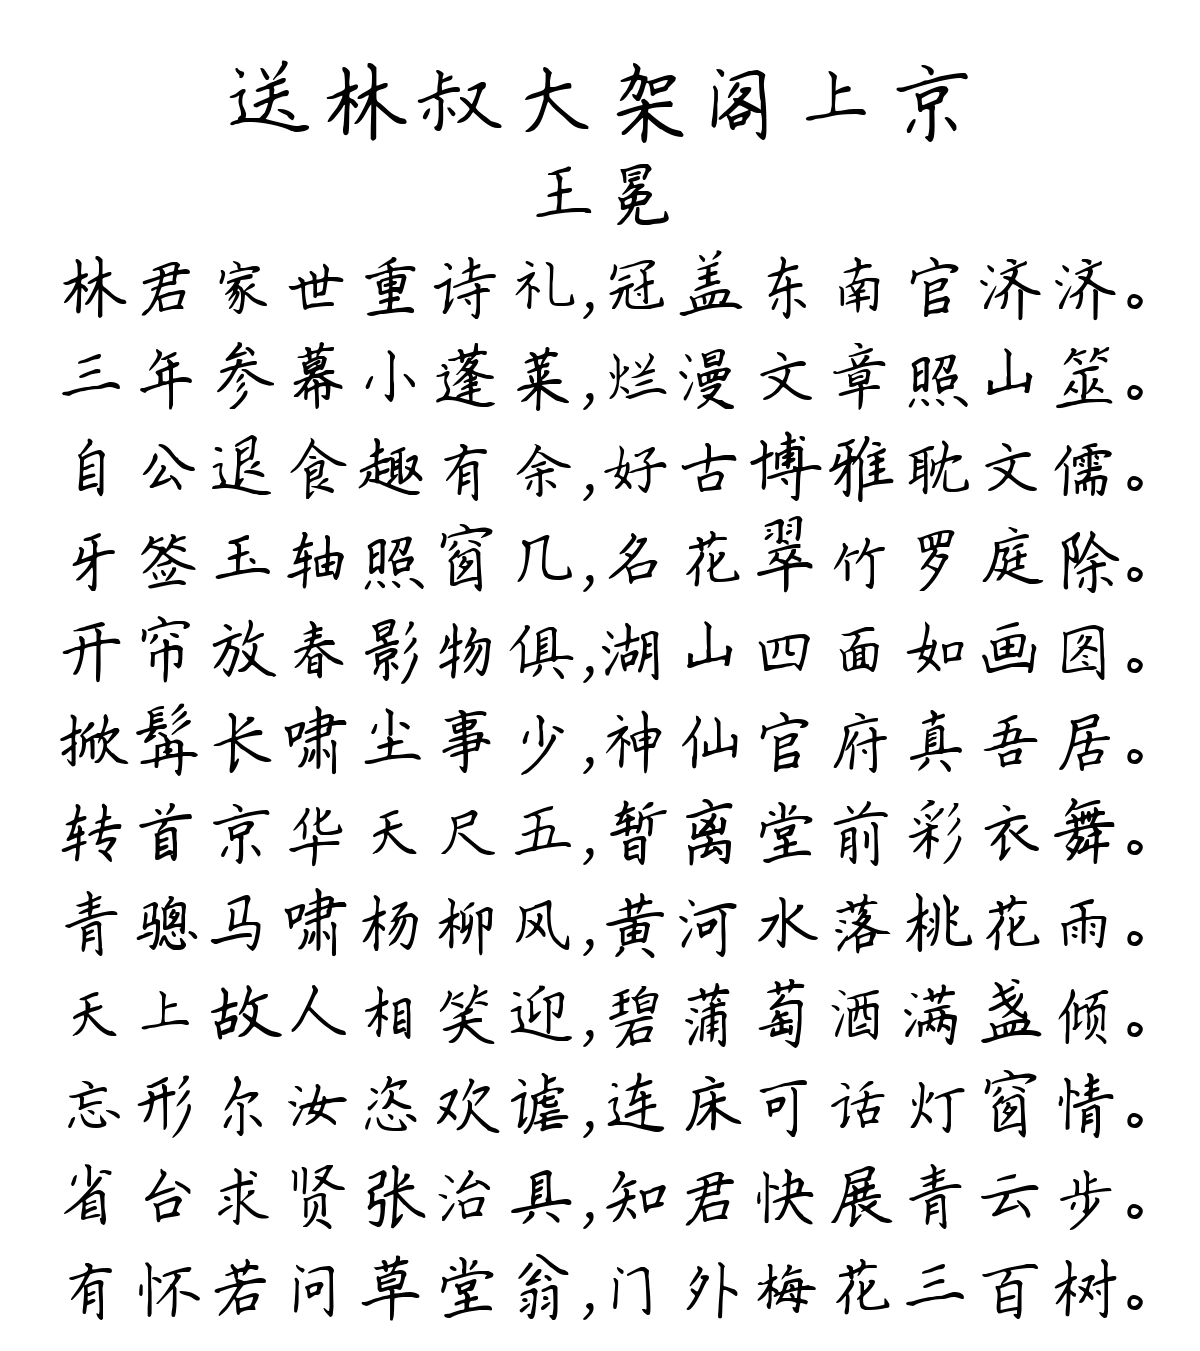 送林叔大架阁上京
王冕
林君家世重诗礼,冠盖东南官济济。
三年参幕小蓬莱,烂漫文章照山筮。
自公退食趣有余,好古博雅耽文儒。
牙签玉轴照窗几,名花翠竹罗庭除。
开帘放春影物俱,湖山四面如画图。
掀髯长啸尘事少,神仙官府真吾居。
转首京华天尺五,暂离堂前彩衣舞。
青骢马啸杨柳风,黄河水落桃花雨。
天上故人相笑迎,碧蒲萄酒满盏倾。
忘形尔汝恣欢谑,连床可话灯窗情。
省台求贤张治具,知君快展青云步。
有怀若问草堂翁,门外梅花三百树。